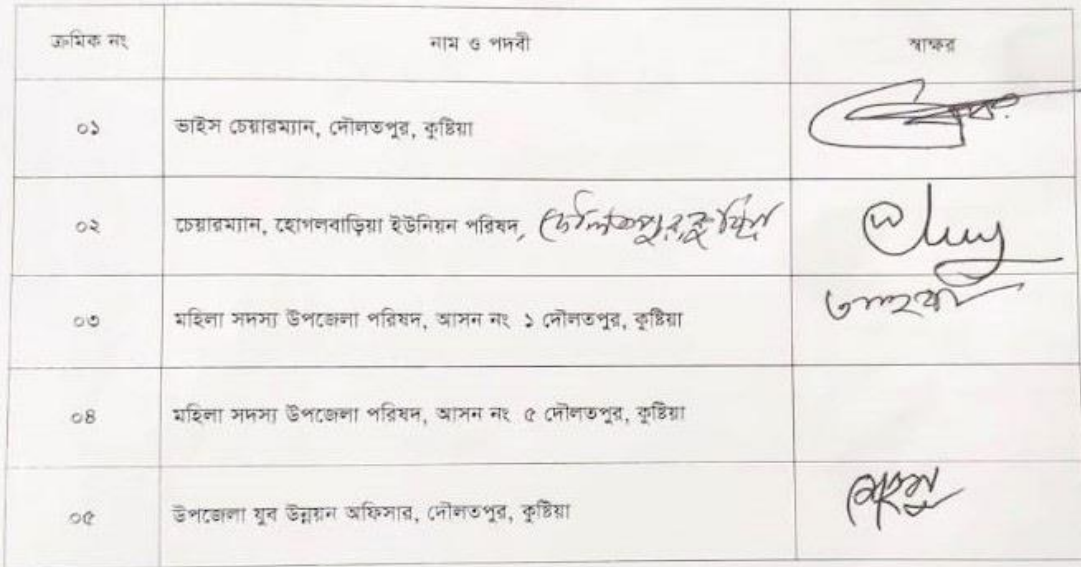 ক্রমিক নং	নাম ও পদবী	স্বাক্ষর
০১	ভাইস চেয়ারম্যান, দৌলতপুর, কুষ্টিয়া
০২	চেয়ারম্যান, হোগলবাড়িয়া ইউনিয়ন পরিষদ, দৌলতপুর, কুষ্টিয়া
০৩	মহিলা সদস্য উপজেলা পরিষদ, আসন নং ১ দৌলতপুর, কুষ্টিয়া
০৪	মহিলা সদস্য উপজেলা পরিষদ, আসন নং ৫ দৌলতপুর, কুষ্টিয়া
০৫	উপজেলা যুব উন্নয়ন অফিসার, দৌলতপুর, কুষ্টিয়া